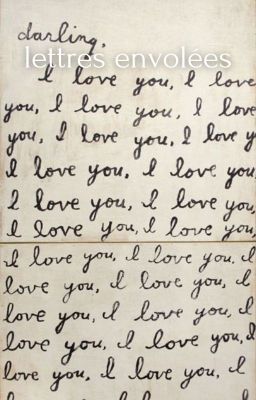 darling,
lettres envolées
I love you, I love
you, I love you, I love
you, I love you, I love y
I love you, I love you,
I love you, I love you,
I love you, I love you,
I love you, I love you, I
love you, I love you, I
love you, I love you, I
love you, I love you, I
love you, I love you, I